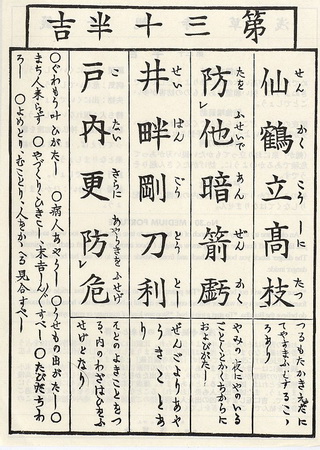 第三十半吉
仙鶴立高枝
せん かく こう しに たつ
つるもたかきえだに
てやすまふとするこゝ
ろあり
防レ他暗箭虧
たを ふせいで あん ぜん かく
やみの夜にやのいる
ごとくとかくちからに
およびがたし
井畔剛刀利
せい はん ごう とう とし
ぜんごよりあや
うきことあ
り
戸内更防危
こ ない さらに あやうきを ふせげ
そとのよきことをつ
る、内のわざはひをふ
せげとなり
○ぐわもう叶ひがたし ○病人あやうし ○うせもの出がたし ○
まち人来らず ○やづくり、ひきこし、末吉しんぐすべし ○たびだちわ
ろし ○よめとり、むことり、人をかゝへる見合すべし